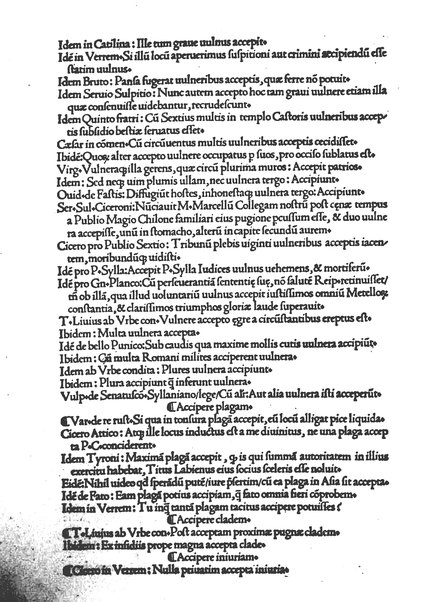 Idem in Catilina: Ille tum graue uulnus accepit.
Idē in Verrem. Si illū locū aperuerimus suspitioni aut crimini accipiendū esse
statim uulnus.
Idem Bruto: Pansa fugerat uulneribus acceptis, quæ ferre nō potuit.
Idem Seruio Sulpitio: Nunc autem accepto hoc tam graui uulnere etiam illa
quæ consenuisse uidebantur, recrudescunt.
Idem Quinto fratri: Cū Sextius multis in templo Castoris uulneribus accep-
tis subsidio bestiæ seruatus esset.
Cæsar in cōmen. Cū circūuentus multis uulneribus acceptis cecidisset.
Ibidē: Quoꝝ alter accepto uulnere occupatus p̄ suos, pro occiso sublatus est.
Virg. Vulneraq; illa gerens, quæ circū plurima muros: Accepit patrios.
Idem: Sed neq; uim plumis ullam, nec uulnera tergo: Accipiunt.
Ouid. de Fastis: Diffugiūt hostes, inhonestaq; uulnera tergo: Accipiunt.
Ser. Sul. Ciceroni: Nūciauit M. Marcellū Collegam nostrū post cenæ tempus
a Publio Magio Chilone familiari eius pugione pcussum esse, & duo uulne
ra accepisse, unū in stomacho, alterū in capite secundū aurem.
Cicero pro Publio Sextio: Tribunū plebis uiginti uulneribus acceptis iacen
tem, moribundūq; uidisti.
Idē pro P. Sylla: Accepit P. Sylla Iudices uulnus uehemens, & mortiferū.
Idē pro Gn. Planco: Cū perseuerantiā sententiæ suę, nō salutē Reip. retinuisset/
tn̄ ob illā, qua illud uoluntariū uulnus accepit iustissimos omniū Metelloꝝ
constantia, & clarissimos triumphos gloriæ laude superauit.
T. Liuius ab Vrbe con. Vulnere accepto ęgre a circūstantibus ereptus est.
Ibidem: Multa uulnera accepta.
Idē de bello Punico: Sub caudis qua maxime mollis cutis uulnera accipiūt.
Ibidem: Cū multa Romani milites acciperent uulnera.
Idem ab Vrbe condita: Plures uulnera accipiunt.
Ibidem: Plura accipiunt q̄ inferunt uulnera.
Vulp. de Senatuscō. Syllaniano/lege/Cū aliꝛ: Aut alia uulnera isti acceperūt.
¶Accipere plagam.
¶Var. de re rust. Si qua in tonsura plagā accepit, eū locū alligat pice liquida.
Cicero Attico: Atq; ille locus inductus est a me diuinitus, ne una plaga accep
ta P. C. conciderent.
Idem Tyroni: Maximā plagā accepit, q; is qui summā autoritatem in illius
exercitu habebat, Titus Labienus eius socius sceleris esse noluit.
Eidē: Nihil uideo qd sperādū putē/iure p̄sertim/cū ea plaga in Asia sit accepta.
Idē de Fato: Eam plagā potius accipiam, q̄ fato omnia fieri cōprobem.
Idem in Verrem: Tu inq; tantā plagam tacitus accipere potuisses?
¶Accipere cladem.
¶T. Liuius ab Vrbe con. Post acceptam proximæ pugnæ cladem.
Ibidem: Ex insidiis prope magna accepta clade.
¶Accipere iniuriam.
¶Cicero in Verrem: Nulla priuatim accepta iniuria.